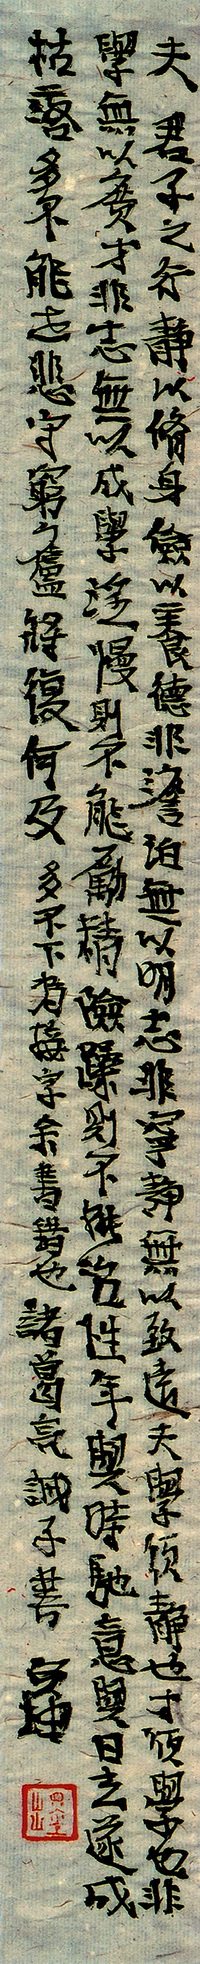 夫君子之行靜以脩身儉以養德非澹泊無以明志非寧靜無以致遠夫學須靜也才須學也非
學無以廣才非志無以成學淫慢則不能勵精險躁則不能冶性年與時馳意與日去遂成
枯落多不能志悲守窮廬將復何及 多不下為接字余書錯也 諸葛亮誡子書